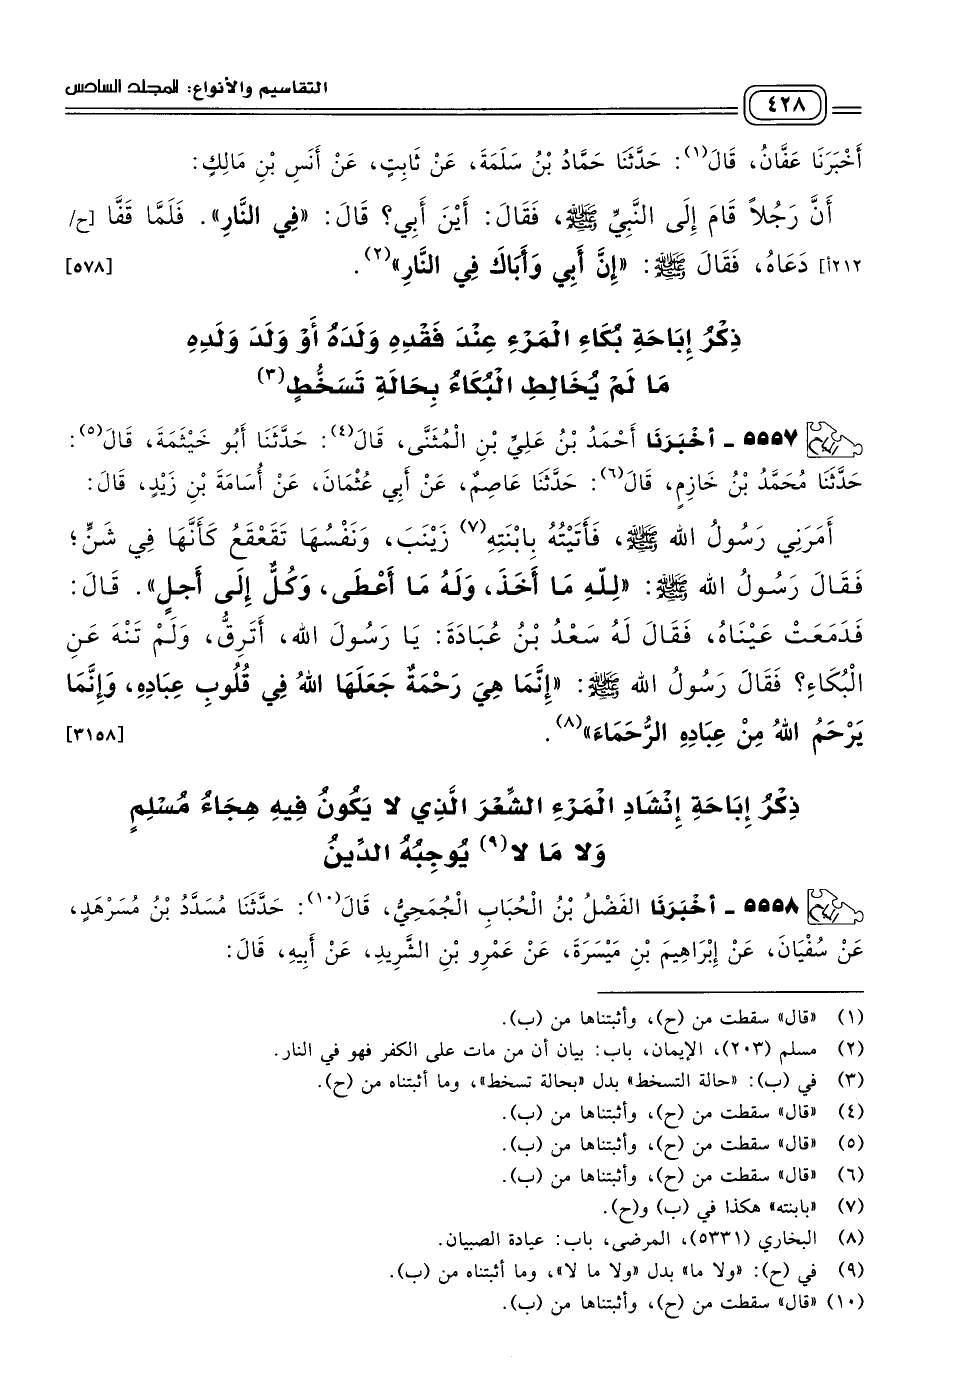 ٤٢٨
التقاسيم والأنواع: المجلد السادس
أَخْبَرَنَا عَفَّانُ، قَالَ(١): حَدَّثَنَا حَمَّادُ بْنُ سَلَمَةَ، عَنْ ثَابِتٍ، عَنْ أَنَسِ بْنِ مَالِكٍ:
أَنَّ رَجُلاً قَامَ إِلَى النَّبِيِّ ﷺ، فَقَالَ: أَيْنَ أَبِي؟ قَالَ: «فِي النَّارِ». فَلَمَّا قَفَّا [ح/
٢١٢أ] دَعَاهُ، فَقَالَ ﷺ: «إِنَّ أَبِي وَأَبَاكَ فِي النَّارِ»(٢). [٥٧٨]
ذِكْرُ إِبَاحَةِ بُكَاءِ الْمَرْءِ عِنْدَ فَقْدِهِ وَلَدَهُ أَوْ وَلَدَ وَلَدِهِ
مَا لَمْ يُخَالِطِ الْبُكَاءُ بِحَالَةِ تَسَخُّطٍ(٣)
٥٥٥٧ - أخْبَرَنَا أَحْمَدُ بْنُ عَلِيِّ بْنِ الْمُثَنَّى، قَالَ(٤): حَدَّثَنَا أَبُو خَيْثَمَةَ، قَالَ(٥):
حَدَّثَنَا مُحَمَّدُ بْنُ خَازِمٍ، قَالَ(٦): حَدَّثَنَا عَاصِمٌ، عَنْ أَبِي عُثْمَانَ، عَنْ أُسَامَةَ بْنِ زَيْدٍ، قَالَ:
أَمَرَنِي رَسُولُ الله ﷺ، فَأَتَيْتُهُ بِابْنَتِهِ(٧) زَيْنَبَ، وَنَفْسُهَا تَقَعْقَعُ كَأَنَّهَا فِي شَنٍّ؛
فَقَالَ رَسُولُ الله ﷺ: «لِلَّهِ مَا أَخَذَ، وَلَهُ مَا أَعْطَى، وَكُلٌّ إِلَى أَجلٍ». قَالَ:
فَدَمَعَتْ عَيْنَاهُ، فَقَالَ لَهُ سَعْدُ بْنُ عُبَادَةَ: يَا رَسُولَ الله، أَتَرِقُّ، وَلَمْ تَنْهَ عَنِ
الْبُكَاءِ؟ فَقَالَ رَسُولُ الله ﷺ: «إِنَّمَا هِيَ رَحْمَةٌ جَعَلَهَا اللهُ فِي قُلُوبِ عِبَادِهِ، وَإِنَّمَا
يَرْحَمُ اللهُ مِنْ عِبَادِهِ الرُّحَمَاءَ»(٨). [٣١٥٨]
ذِكْرُ إِبَاحَةِ إِنْشَادِ الْمَرْءِ الشِّعْرَ الَّذِي لا يَكُونُ فِيهِ هِجَاءُ مُسْلِمٍ
وَلا مَا لا(٩) يُوجِبُهُ الدِّينُ
٥٥٥٨ - أخْبَرَنَا الفَضْلُ بْنُ الْحُبَابِ الْجُمَحِيُّ، قَالَ(١٠): حَدَّثَنَا مُسَدَّدُ بْنُ مُسَرْهَدٍ،
عَنْ سُفْيَانَ، عَنْ إِبْرَاهِيمَ بْنِ مَيْسَرَةَ، عَنْ عَمْرِو بْنِ الشَّرِيدِ، عَنْ أَبِيهِ، قَالَ:
(١) «قال» سقطت من (ح)، وأثبتناها من (ب).
(٢) مسلم (٢٠٣)، الإيمان، باب: بيان أن من مات على الكفر فهو في النار.
(٣) في (ب): «حالة التسخط» بدل «بحالة تسخط»، وما أثبتناه من (ح).
(٤) «قال» سقطت من (ح)، وأثبتناها من (ب).
(٥) «قال» سقطت من (ح)، وأثبتناها من (ب).
(٦) «قال» سقطت من (ح)، وأثبتناها من (ب).
(٧) «بابنته» هكذا في (ب) و(ح).
(٨) البخاري (٥٣٣١)، المرضى، باب: عيادة الصبيان.
(٩) في (ح): «ولا ما» بدل «ولا ما لا»، وما أثبتناه من (ب).
(١٠) «قال» سقطت من (ح)، وأثبتناها من (ب).